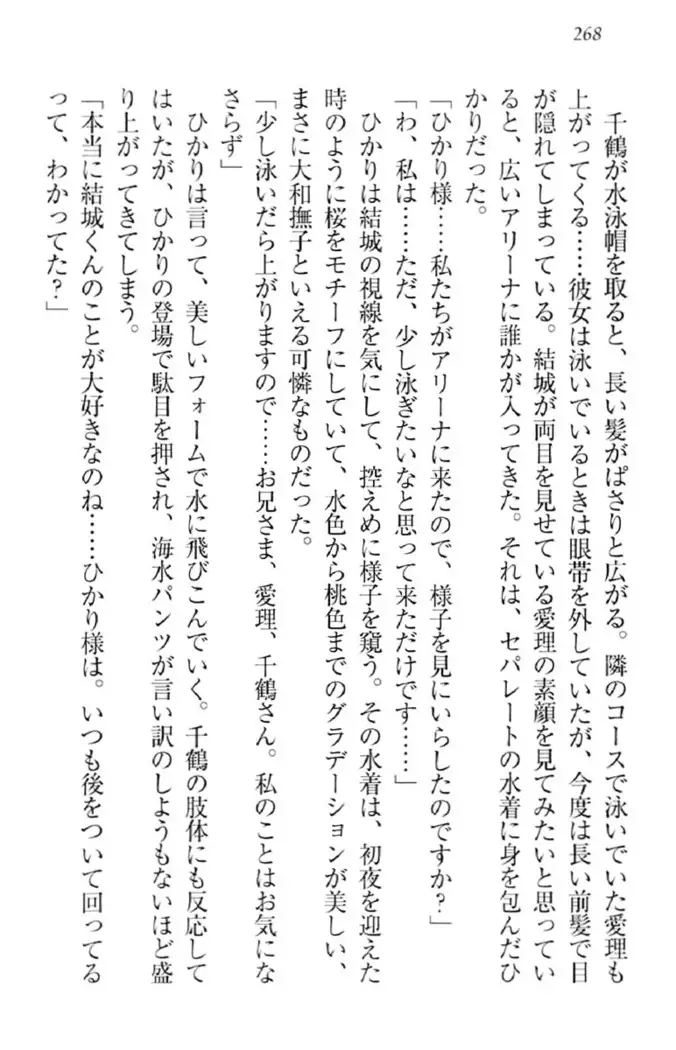 268
千鶴が水泳帽を取ると、長い髪がぱさりと広がる。隣のコースで泳いでいた愛理も
上がってくる……彼女は泳いでいるときは眼帯を外していたが、今度は長い前髪で目
が隠れてしまっている。結城が両目を見せている愛理の素顔を見てみたいと思ってい
ると、広いアリーナに誰かが入ってきた。それは、セパレートの水着に身を包んだひ
かりだった。
「ひかり様……私たちがアリーナに来たので、様子を見にいらしたのですか？」
「わ、私は……ただ、少し泳ぎたいなと思って来ただけです……」
ひかりは結城の視線を気にして、控えめに様子を窺う。その水着は、初夜を迎えた
時のように桜をモチーフにしていて、水色から桃色までのグラデーションが美しい、
まさに大和撫子といえる可憐なものだった。
「少し泳いだら上がりますので……お兄さま、愛理、千鶴さん。私のことはお気にな
さらず」
ひかりは言って、美しいフォームで水に飛びこんでいく。千鶴の肢体にも反応して
はいたが、ひかりの登場で駄目を押され、海水パンツが言い訳のしようもないほど盛
り上がってきてしまう。
「本当に結城くんのことが大好きなのね……ひかり様は。いつも後をついて回ってる
って、わかってた？」